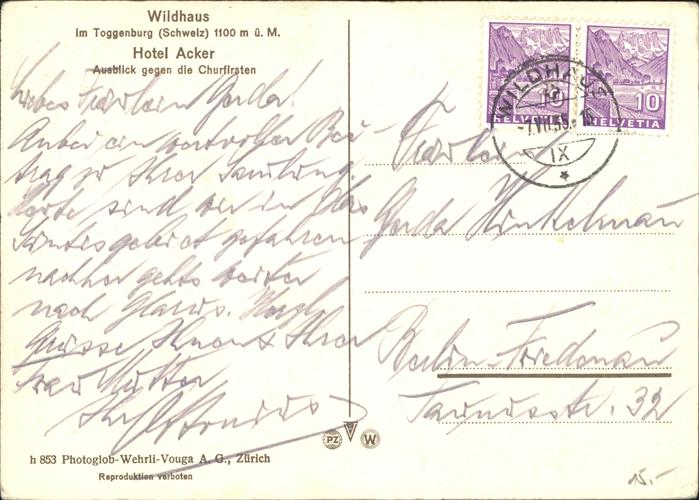 Wildhaus
im Toggenburg (Schweiz) 1100 m ü. M.
Hotel Acker
Ausblick gegen die Churfirsten
Liebes Fräulein Gerda!
Anbei ein wertvoller Bei-
trag zu Ihrer Sammlung.
Heute sind wir in das
Säntisgebiet gefahren
nachher gehts weiter
nach Glarus. Herzl.
Grüsse Ihnen & Ihrer
Frau Mutter
Ihr
h 853 Photoglob-Wehrli-Vouga A. G., Zürich
Reproduktion verboten
PZ
W
10
HELVETIA
10
HELVETIA
WILDHAUS
-7.VII.35.-16
IX
Fräulein
Gerda Hinkelman
Berlin-Friedenau
Taunusstr. 32
15.-